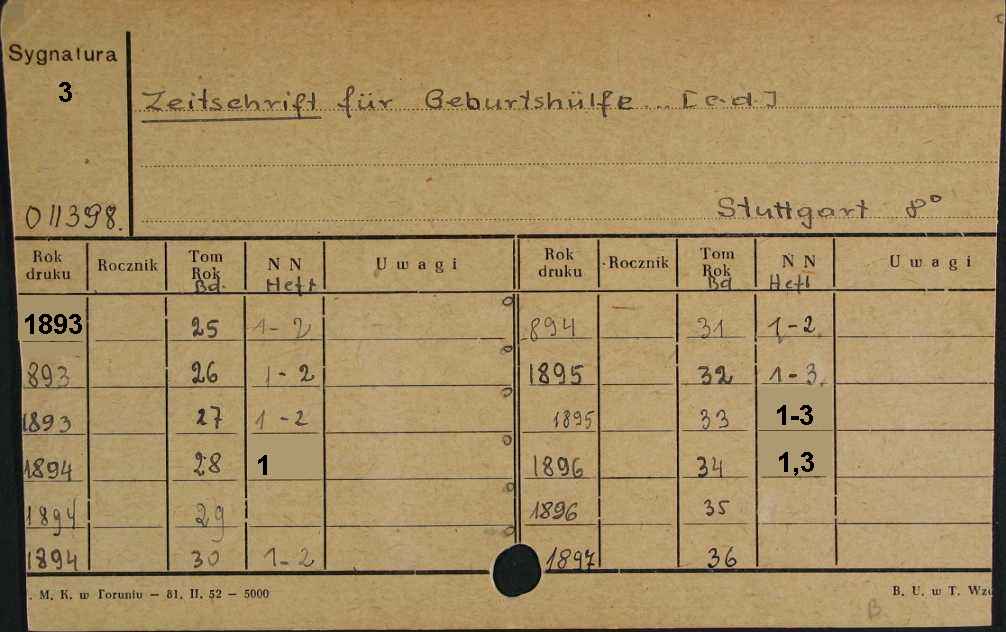 Sygnatura
3
Zeitschrift für Geburtshülfe... [c.d.]
011398.
Stuttgart 8°
Rok druku Rocznik Tom Rok Bd. NN Heft Uwagi Rok druku Rocznik Tom Rok Bd NN Heft Uwagi
1893 25 1-2 894 31 1-2
893 26 1-2 1895 32 1-3.
1893 27 1-2 1895 33 1-3
1894 28 1 1896 34 1,3
1894 29 1896 35
1894 30 1-2 1897 36
. M. K. w Toruniu — 81. II. 52 — 5000 B. U. w T. Wzó
B